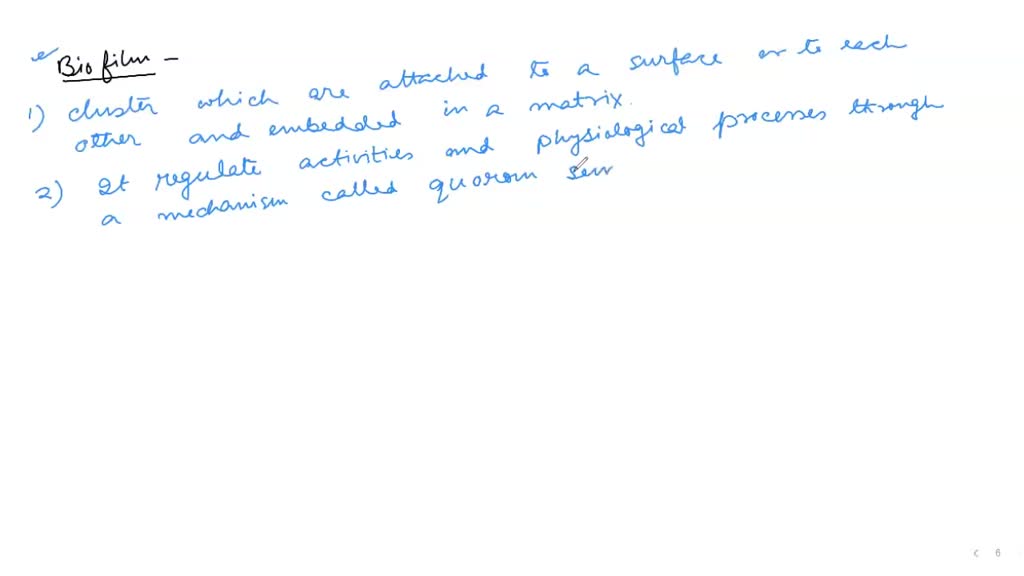 Biofilm -
1) cluster which are attached to a surface or to each
other and embedded in a matrix.
2) It regulate activities and physiological processes through
a mechanism called quorom sen
6